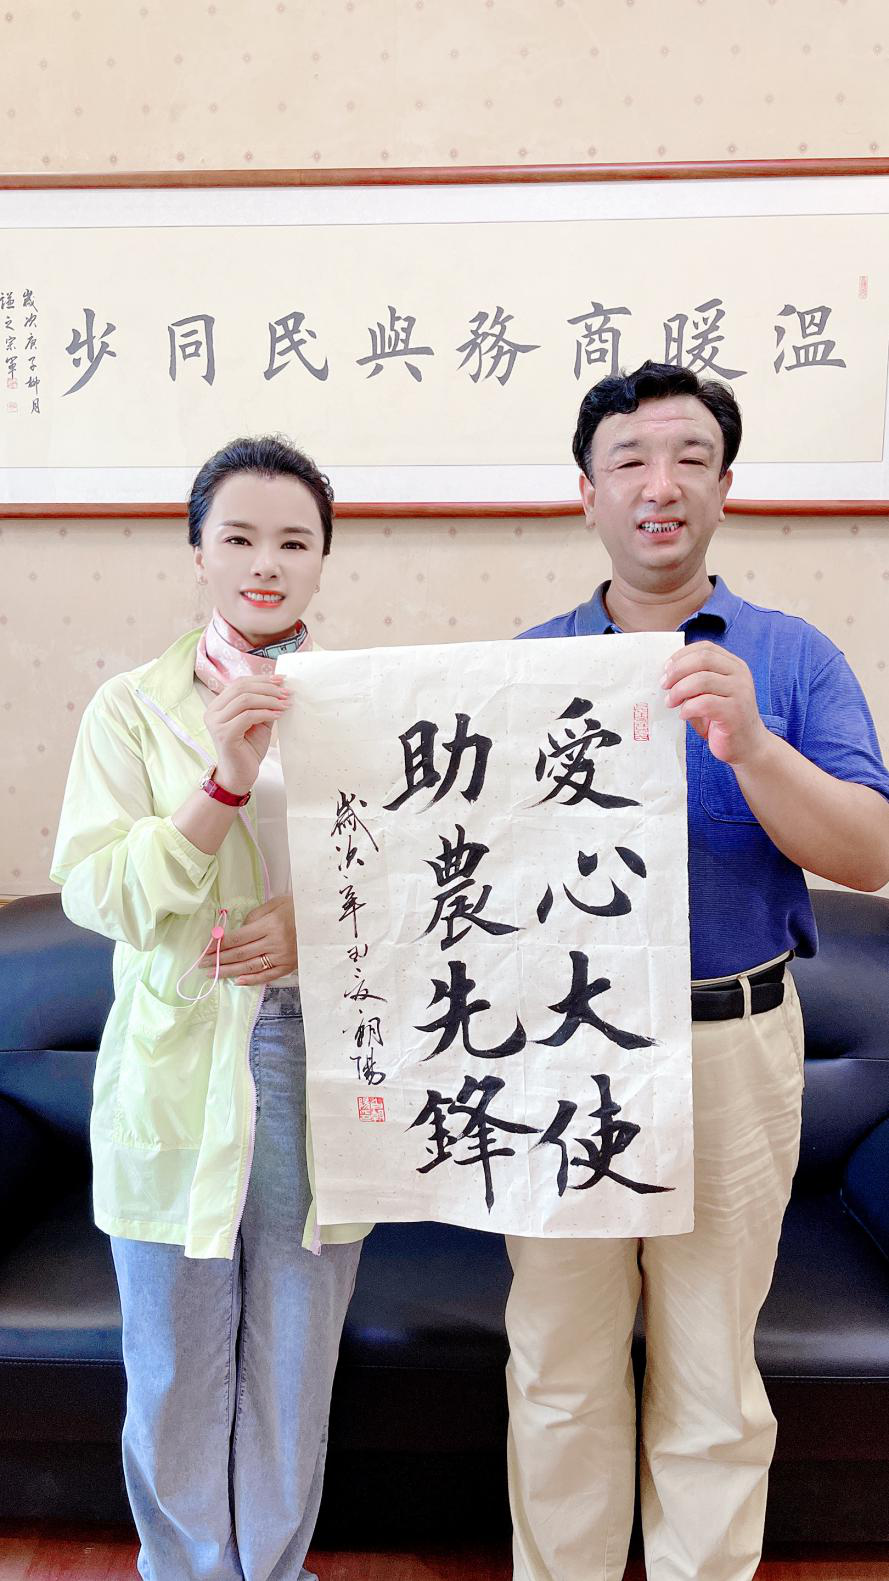 溫暖商務與民同步
歲次庚子柳月
謹之宗軍
愛心大使
助農先鋒
歲次辛丑夏朝陽